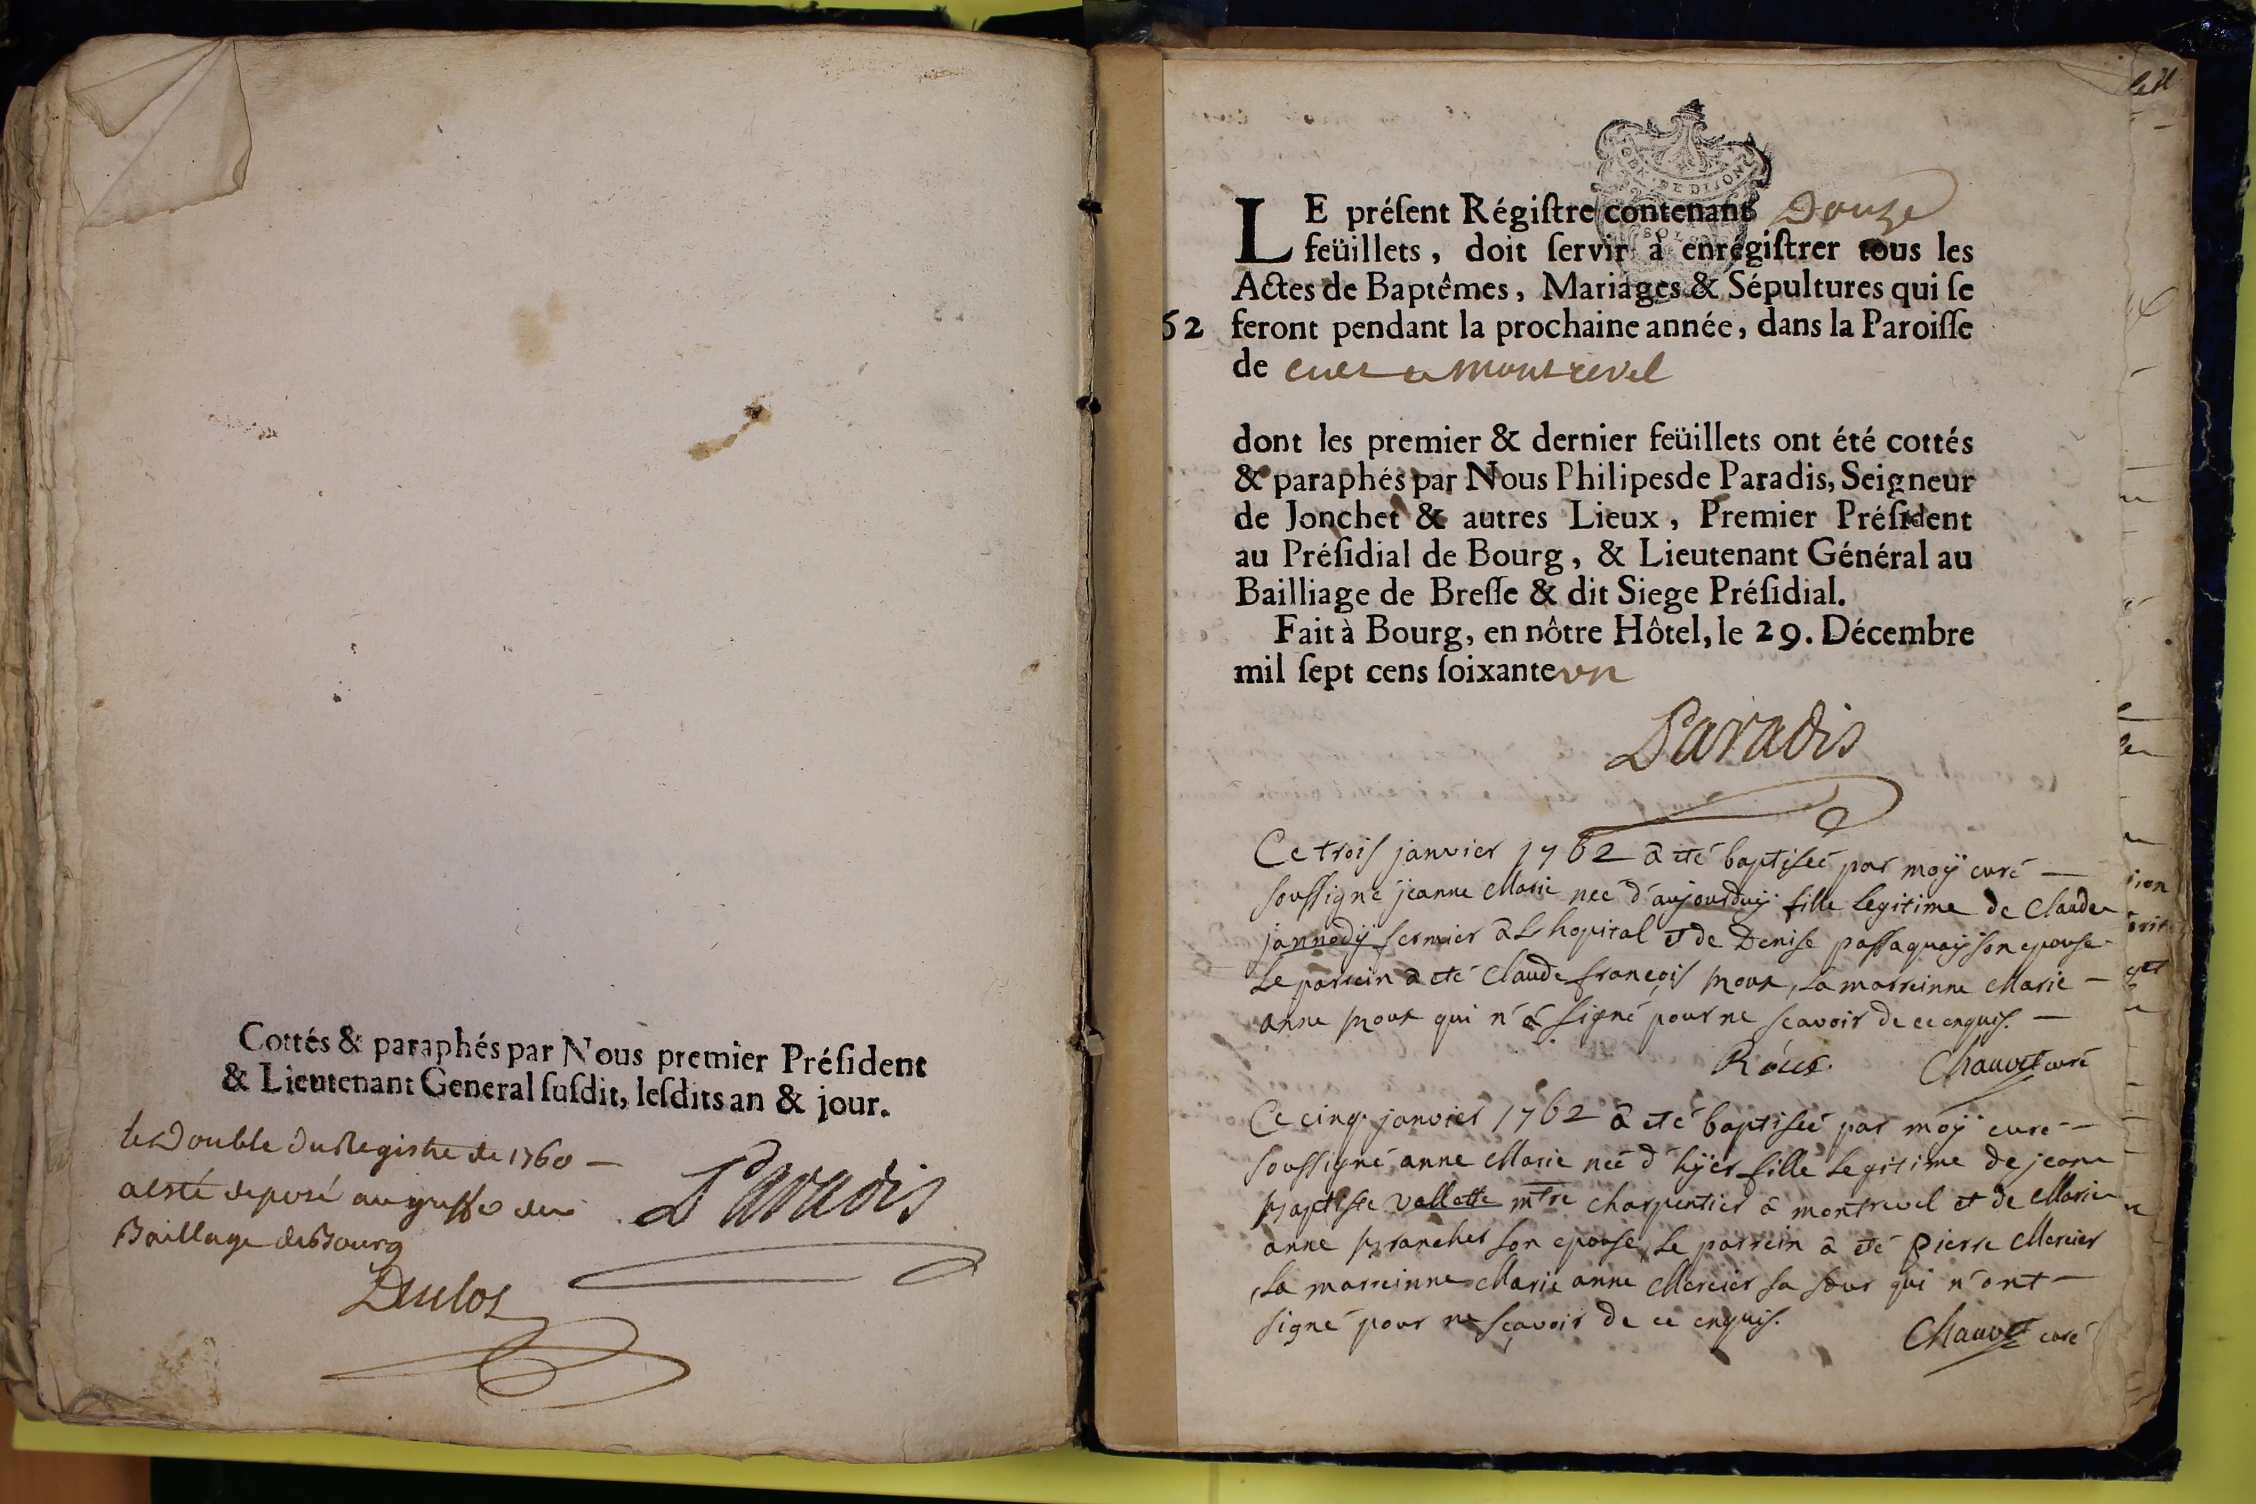 Cottés & paraphés par Nous premier Préſident
& Lieutenant General ſuſdit, leſdits an & jour.
le Double du Registre de 1760 –
a esté deposé au greffe du
Baillage de Bourg
Paradis
GEN. DE DIJON
LE préſent Régiſtre contenant Douze
feüillets, doit ſervir à enrégiſtrer tous les
Actes de Baptêmes, Mariages & Sépultures qui ſe
62 feront pendant la prochaine année, dans la Paroiſſe
de cuet a montrevel
dont les premier & dernier feüillets ont été cottés
& paraphés par Nous Philipes de Paradis, Seigneur
de Jonchet & autres Lieux, Premier Préſident
au Préſidial de Bourg, & Lieutenant Général au
Bailliage de Breſſe & dit Siege Préſidial.
Fait à Bourg, en nôtre Hôtel, le 29. Décembre
mil ſept cens ſoixante un
Paradis
Ce trois janvier 1762 â eté baptiseé par moÿ curé –
soussigné jeanne Marie neé d'aujourduÿ fille legitime de Claude
jannodÿ fermier â L'hopital et de Denise passaquaÿ son epouse
Le parrein â eté Claude françois roux, La marreinne Marie –
anne roux qui n'â signé pour ne scavoir de ce enquis. –
Roux. Chauvet curé
Ce cinq janvier 1762 â eté baptiseé par moÿ curé –
soussigné anne Marie neé d'hÿer fille Legitime de jean
baptiste vallette mtre charpentier â montrevel et de Marie
anne son epouse, Le parrein â eté pierre Mercier
La marreinne Marie anne Mercier sa sœur qui n'ont –
signé pour ne sçavoir de ce enquis.
Chauvet curé